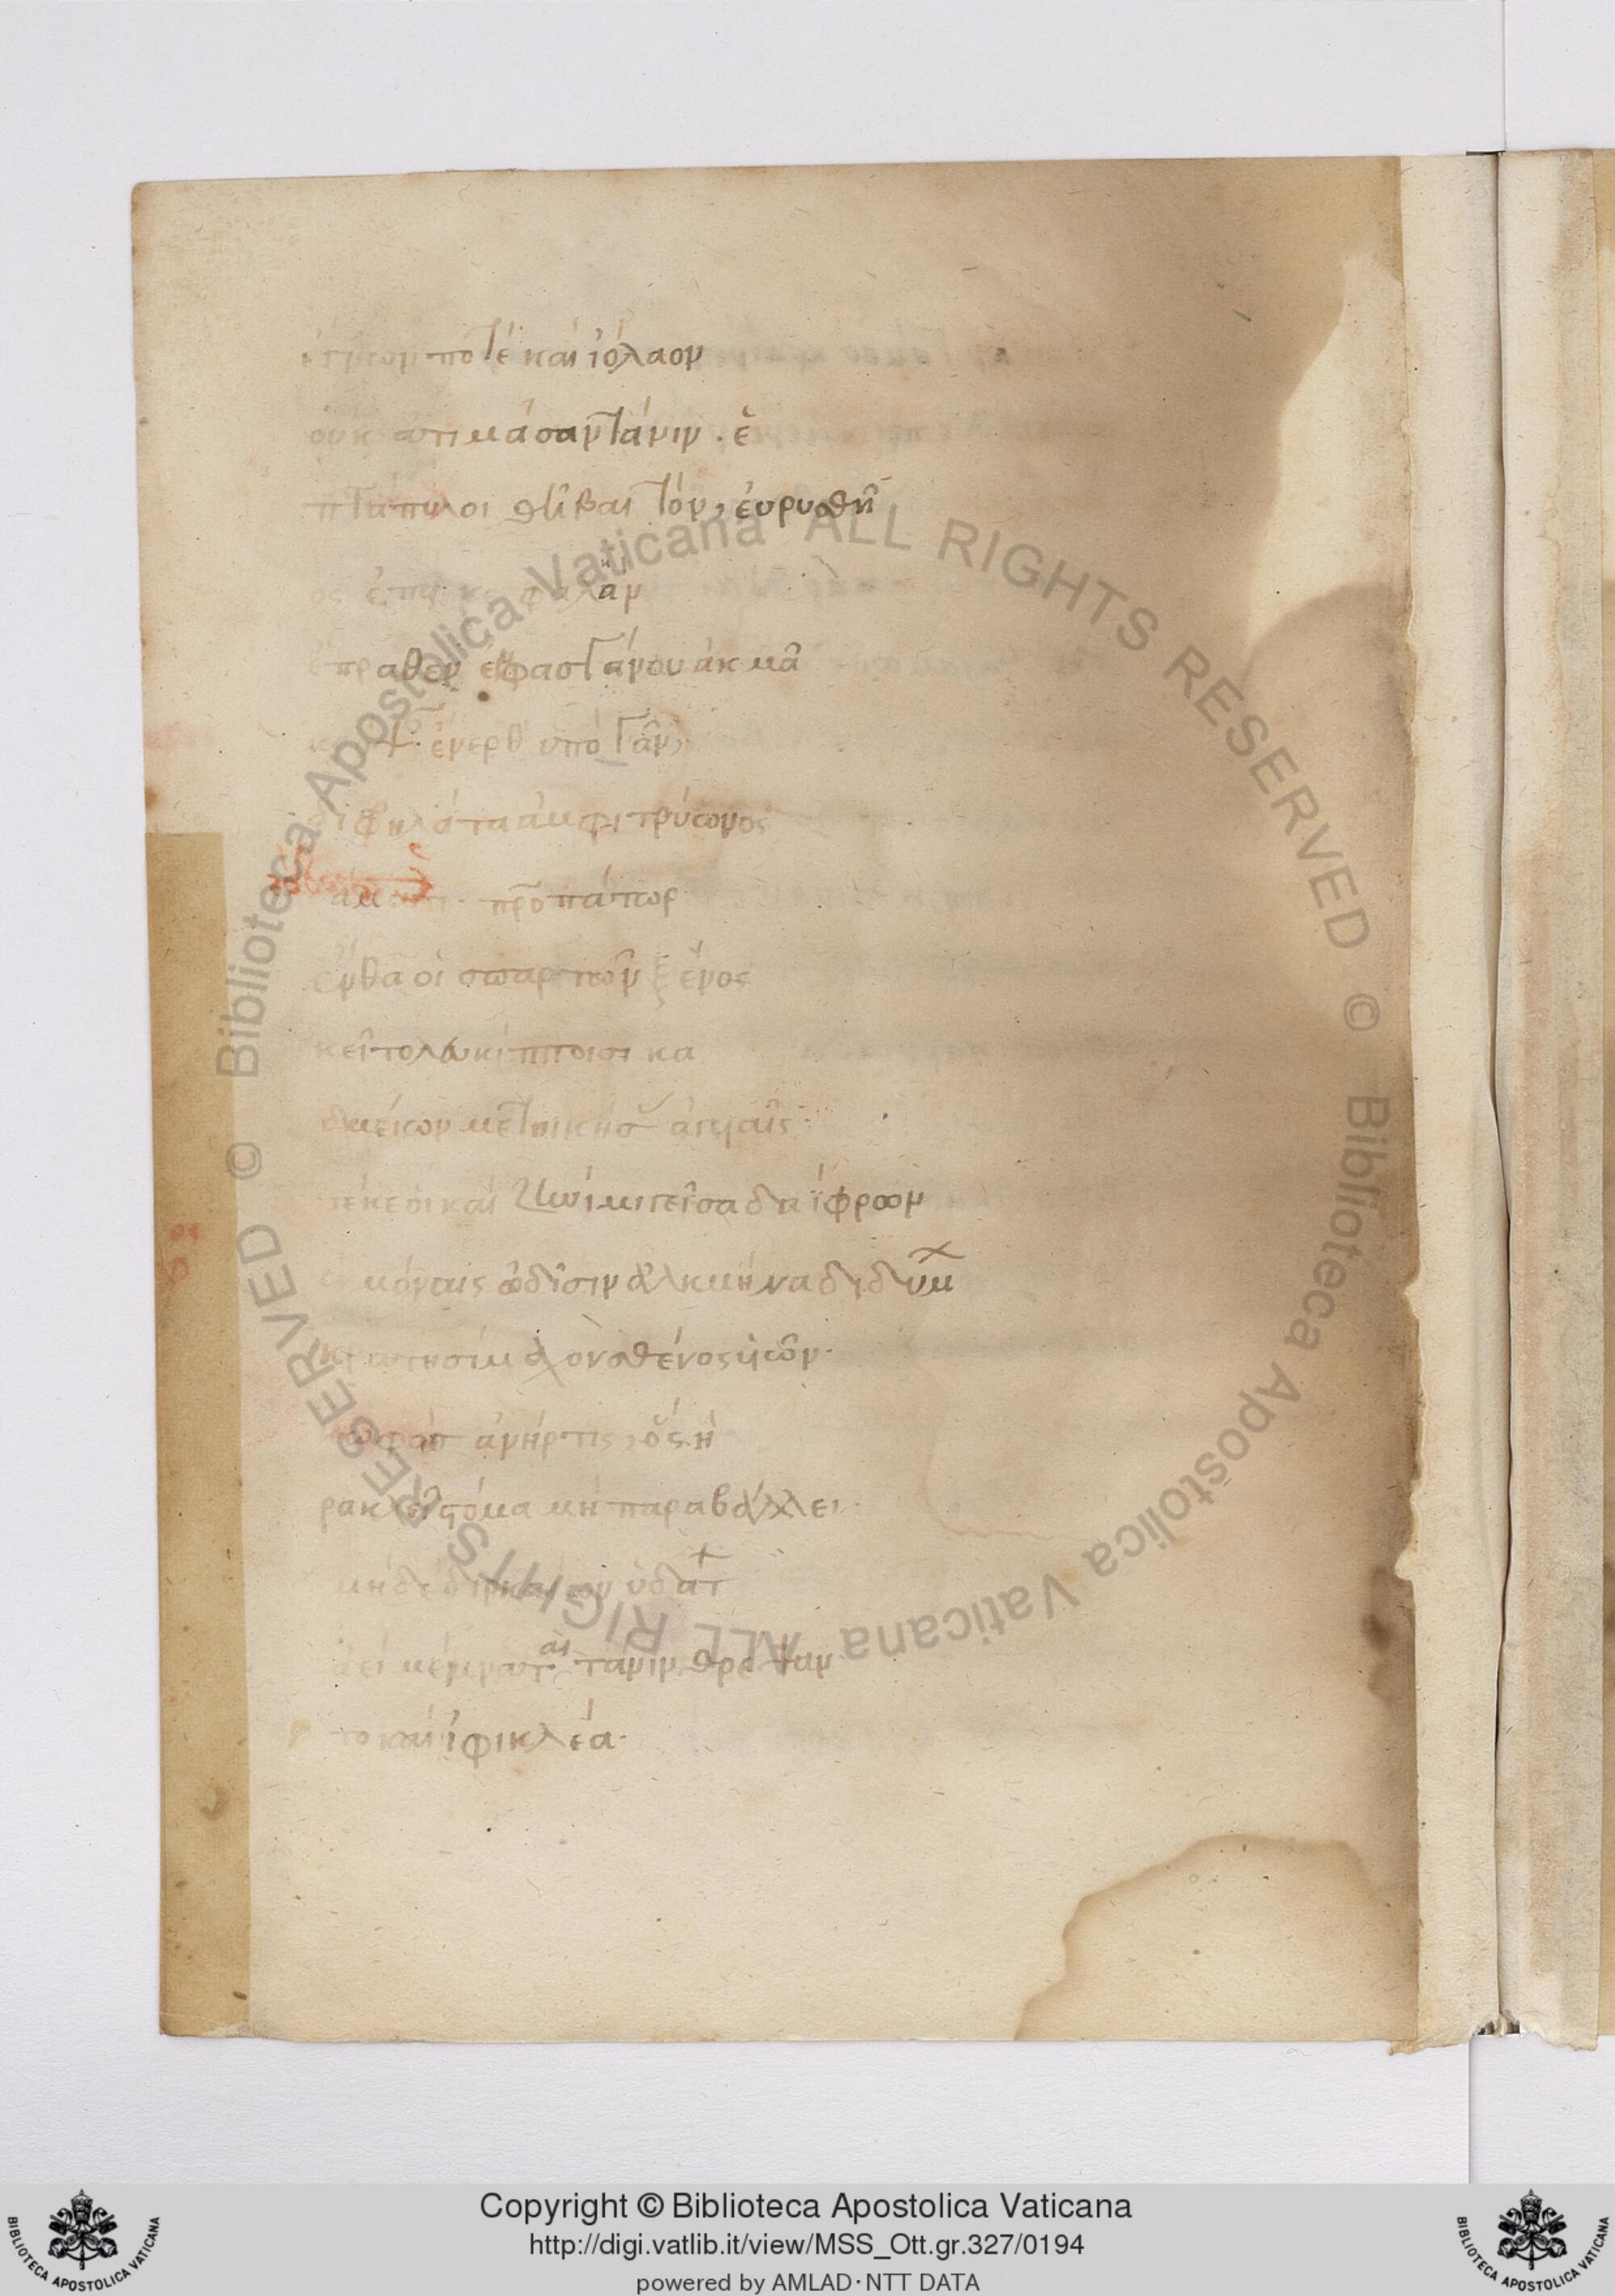 ποτὲ καὶ ἰόλαον
οὐκ ἀτιμάσαντάνιν · ἑ
πτάπυλοι θῆβαι τόν, ἐυρυσθῆ
ος ἐπεὶ κεφαλὰν
ἔπραθεν φασγάνου ἀκμᾶ
ἔνερθ ὑπὸ γᾶν,
διφρηλάτα ἀμφιτρύωνος
προπάτωρ
ἔνθά οἱ σπαρτῶν ξένος
κεῖτο λευκίπποισι κα
δμείων μετοικήσ ἀγυιαῖς
τέκε οἱ καὶ ζηνὶ μιγεῖσα δαΐφρων
μόναις ὠδῖσιν ἀλκμήνα διδύμ
κρατησίμαχον σθένος ὑιῶν.
κωφὸσ ἀνήρ τις, ὃς ἡ
ρακλεῖ στόμα μὴ παραβάλλει.
μὴ δὲ διρκαίων ὑδάτ
ἀεὶ μέμναται, τάνιν θρέψαν
το καὶ ἰφικλέα.
Copyright © Biblioteca Apostolica Vaticana
http://digi.vatlib.it/view/MSS_Ott.gr.327/0194
powered by AMLAD·NTT DATA
BIBLIOTECA APOSTOLICA VATICANA
BIBLIOTECA APOSTOLICA VATICANA
© Biblioteca Apostolica Vaticana ALL RIGHTS RESERVED © Biblioteca Apostolica Vaticana ALL RIGHTS RESERVED